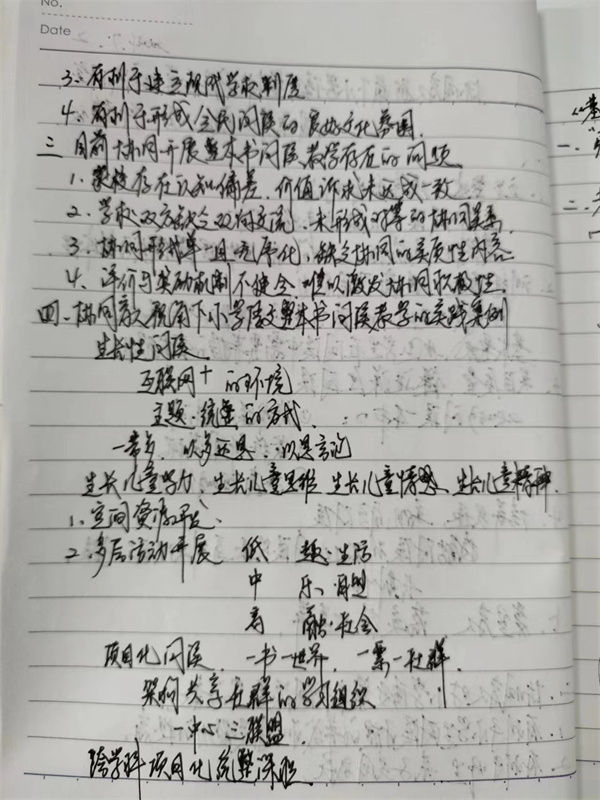 No.
Date
3、有利于建立现代学校制度
4、有利于形成全民阅读的良好文化氛围.
三、目前协同开展整本书阅读教学存在的问题
1、家校存在认知偏差,价值诉求未达成一致
2、学校双方缺乏双向交流,未形成对等的协同关系
3、协同形式单一且无序化,缺乏协同的实质性内容
4、评价与奖励机制不健全 难以激发协同积极性.
四、协同育人视角下小学语文整本书阅读教学的实践案例
生长性阅读
互联网+ 的环境
主题·统整的方式.
一带多,以多
生长儿童学力,生长儿童思维 生长儿童情感 生长儿童精神.
1、空间资源开发.
2、多层活动开展 低 趣·生活
中 乐·自盟
高 融·社会
项目化阅读, 一书一世界, 一票一社群.
架构共享社群的学习组织
一中心三联盟
跨学科项目化统整课程